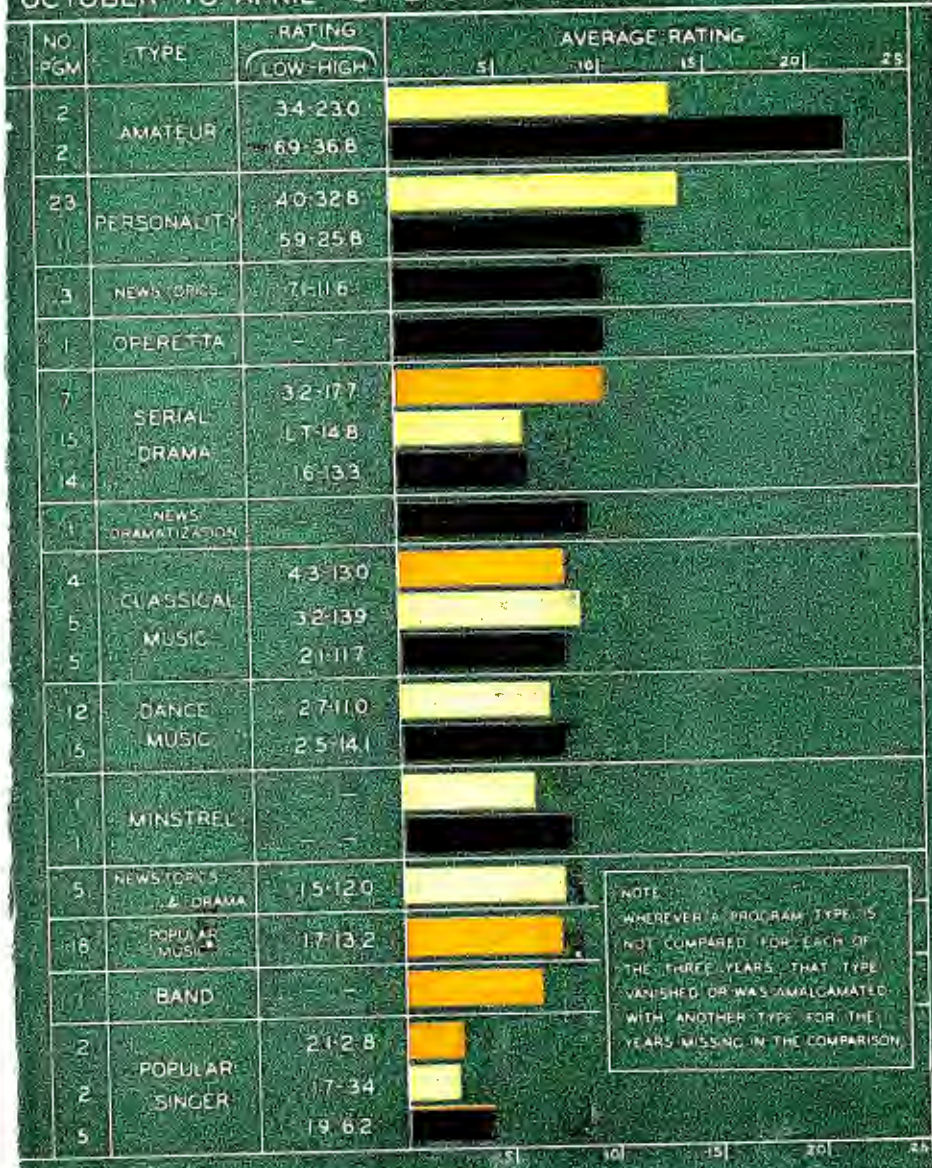 OCTOBER TO APRIL
NO. PGM TYPE RATING LOW-HIGH AVERAGE RATING
5 10 15 20 25
2 AMATEUR 3.4-23.0
2 6.9-36.8
23 PERSONALITY 4.0-32.8
11 5.9-25.8
3 NEWS TOPICS 7.1-11.6
1 OPERETTA - -
7 SERIAL DRAMA 3.2-17.7
15 L.T-14.8
14 1.6-13.3
1 NEWS DRAMATIZATION
4 CLASSICAL MUSIC 4.3-13.0
5 3.2-13.9
5 2.1-11.7
12 DANCE MUSIC 2.7-11.0
2.5-14.1
1 MINSTREL - -
1 - -
5 NEWS TOPICS & DRAMA 1.5-12.0
18 POPULAR MUSIC 1.7-13.2
BAND - -
2 POPULAR SINGER 2.1-2.8
2 1.7-3.4
5 1.9-6.2
NOTE
WHEREVER A PROGRAM TYPE IS
NOT COMPARED FOR EACH OF
THE THREE YEARS, THAT TYPE
VANISHED OR WAS AMALGAMATED
WITH ANOTHER TYPE FOR THE
YEARS MISSING IN THE COMPARISON
5 10 15 20